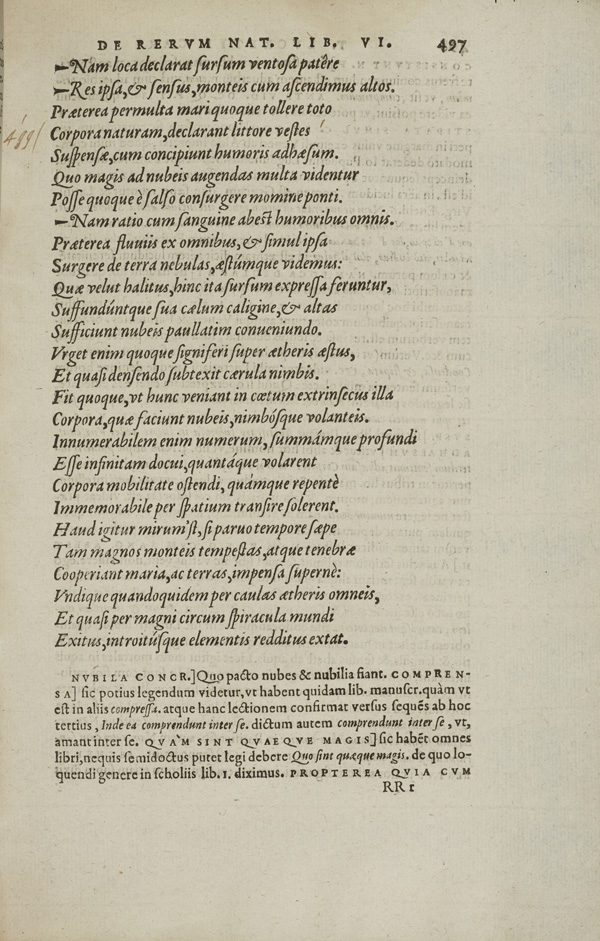 DE RERVM NAT. LIB. VI. 497
Nam loca declarat sursum ventosa patêre
Res ipsa, & sensus, monteis cum ascendimus altos.
Præterea permulta mari quoque tollere toto
499/
Corpora naturam, declarant littore vestes
Suspensæ, cum concipiunt humoris adhæsum.
Quo magis ad nubeis augendas multa videntur
Posse quoque è salso consurgere momine ponti.
Nam ratio cum sanguine abest humoribus omnis.
Præterea fluuiis ex omnibus, & simul ipsa
Surgere de terra nebulas, æstúmque videmus:
Quæ velut halitus, hinc ita sursum expressa feruntur,
Suffundúntque sua cælum caligine, & altas
Sufficiunt nubeis paullatim conueniundo.
Vrget enim quoque signiferi super ætheris æstus,
Et quasi densendo subtexit cærula nimbis.
Fit quoque, vt hunc veniant in cœtum extrinsecus illa
Corpora, quæ faciunt nubeis, nimbósque volanteis.
Innumerabilem enim numerum, summámque profundi
Esse infinitam docui, quantáque volarent
Corpora mobilitate ostendi, quámque repentè
Immemorabile per spatium transire solerent.
Haud igitur mirum'st, si paruo tempore sæpe
Tam magnos monteis tempestas, atque tenebræ
Cooperiant maria, ac terras, impensa supernè:
Vndique quandoquidem per caulas ætheris omneis,
Et quasi per magni circum spiracula mundi
Exitus, introitúsque elementis redditus extat.
NVBILA CONCR.] Quo pacto nubes & nubilia fiant. COMPREN-
SA] sic potius legendum videtur, vt habent quidam lib. manuscr. quàm vt
est in aliis compressa. atque hanc lectionem confirmat versus sequēs ab hoc
tertius, Inde ea comprendunt inter se. dictum autem comprendunt inter se, vt,
amant inter se. QVA'M SINT QVAEQVE MAGIS] sic habēt omnes
libri, nequis semidoctus putet legi debere Quo sint quæque magis. de quo lo-
quendi genere in scholiis lib. 1. diximus. PROPTEREA QVIA CVM
RR 1